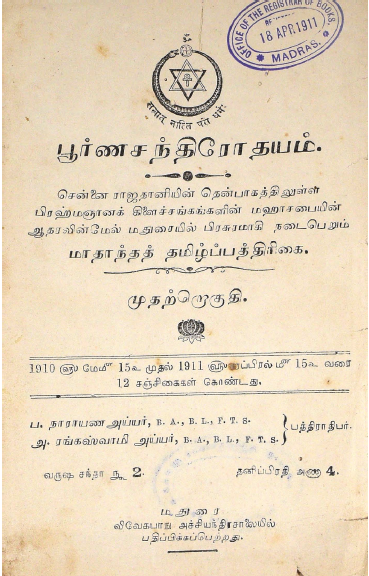 OFFICE OF THE REGISTRAR OF BOOKS,
18 APR. 1911
MADRAS.
सत्यात् नास्ति परो धर्मः
பூர்ணசந்திரோதயம்.
சென்னை ராஜதானியின் தென்பாகத்திலுள்ள
பிரஹ்மஞானக் கிளைச்சங்கங்களின் மஹாசபையின்
ஆதரவின்மேல் மதுரையில் பிரசுரமாகி நடைபெறும்
மாதாந்தத் தமிழ்ப்பத்திரிகை.
முதற்றொகுதி.
1910 ௵ மேமீ 15௳ முதல் 1911 ௵ ஏப்பிரல் மீ 15௳ வரை
12 சஞ்சிகைகள் கொண்டது.
ப. நாராயண அய்யர், B. A., B. L., F. T. S.
அ. ரங்கஸ்வாமி அய்யர், B. A., B. L., F. T. S.
பத்திராதிபர்.
வருஷ சந்தா ரூ 2. தனிப்பிரதி அணா 4.
மதுரை
விவேகபாநு அச்சியந்திரசாலையில்
பதிப்பிக்கப்பெற்றது.